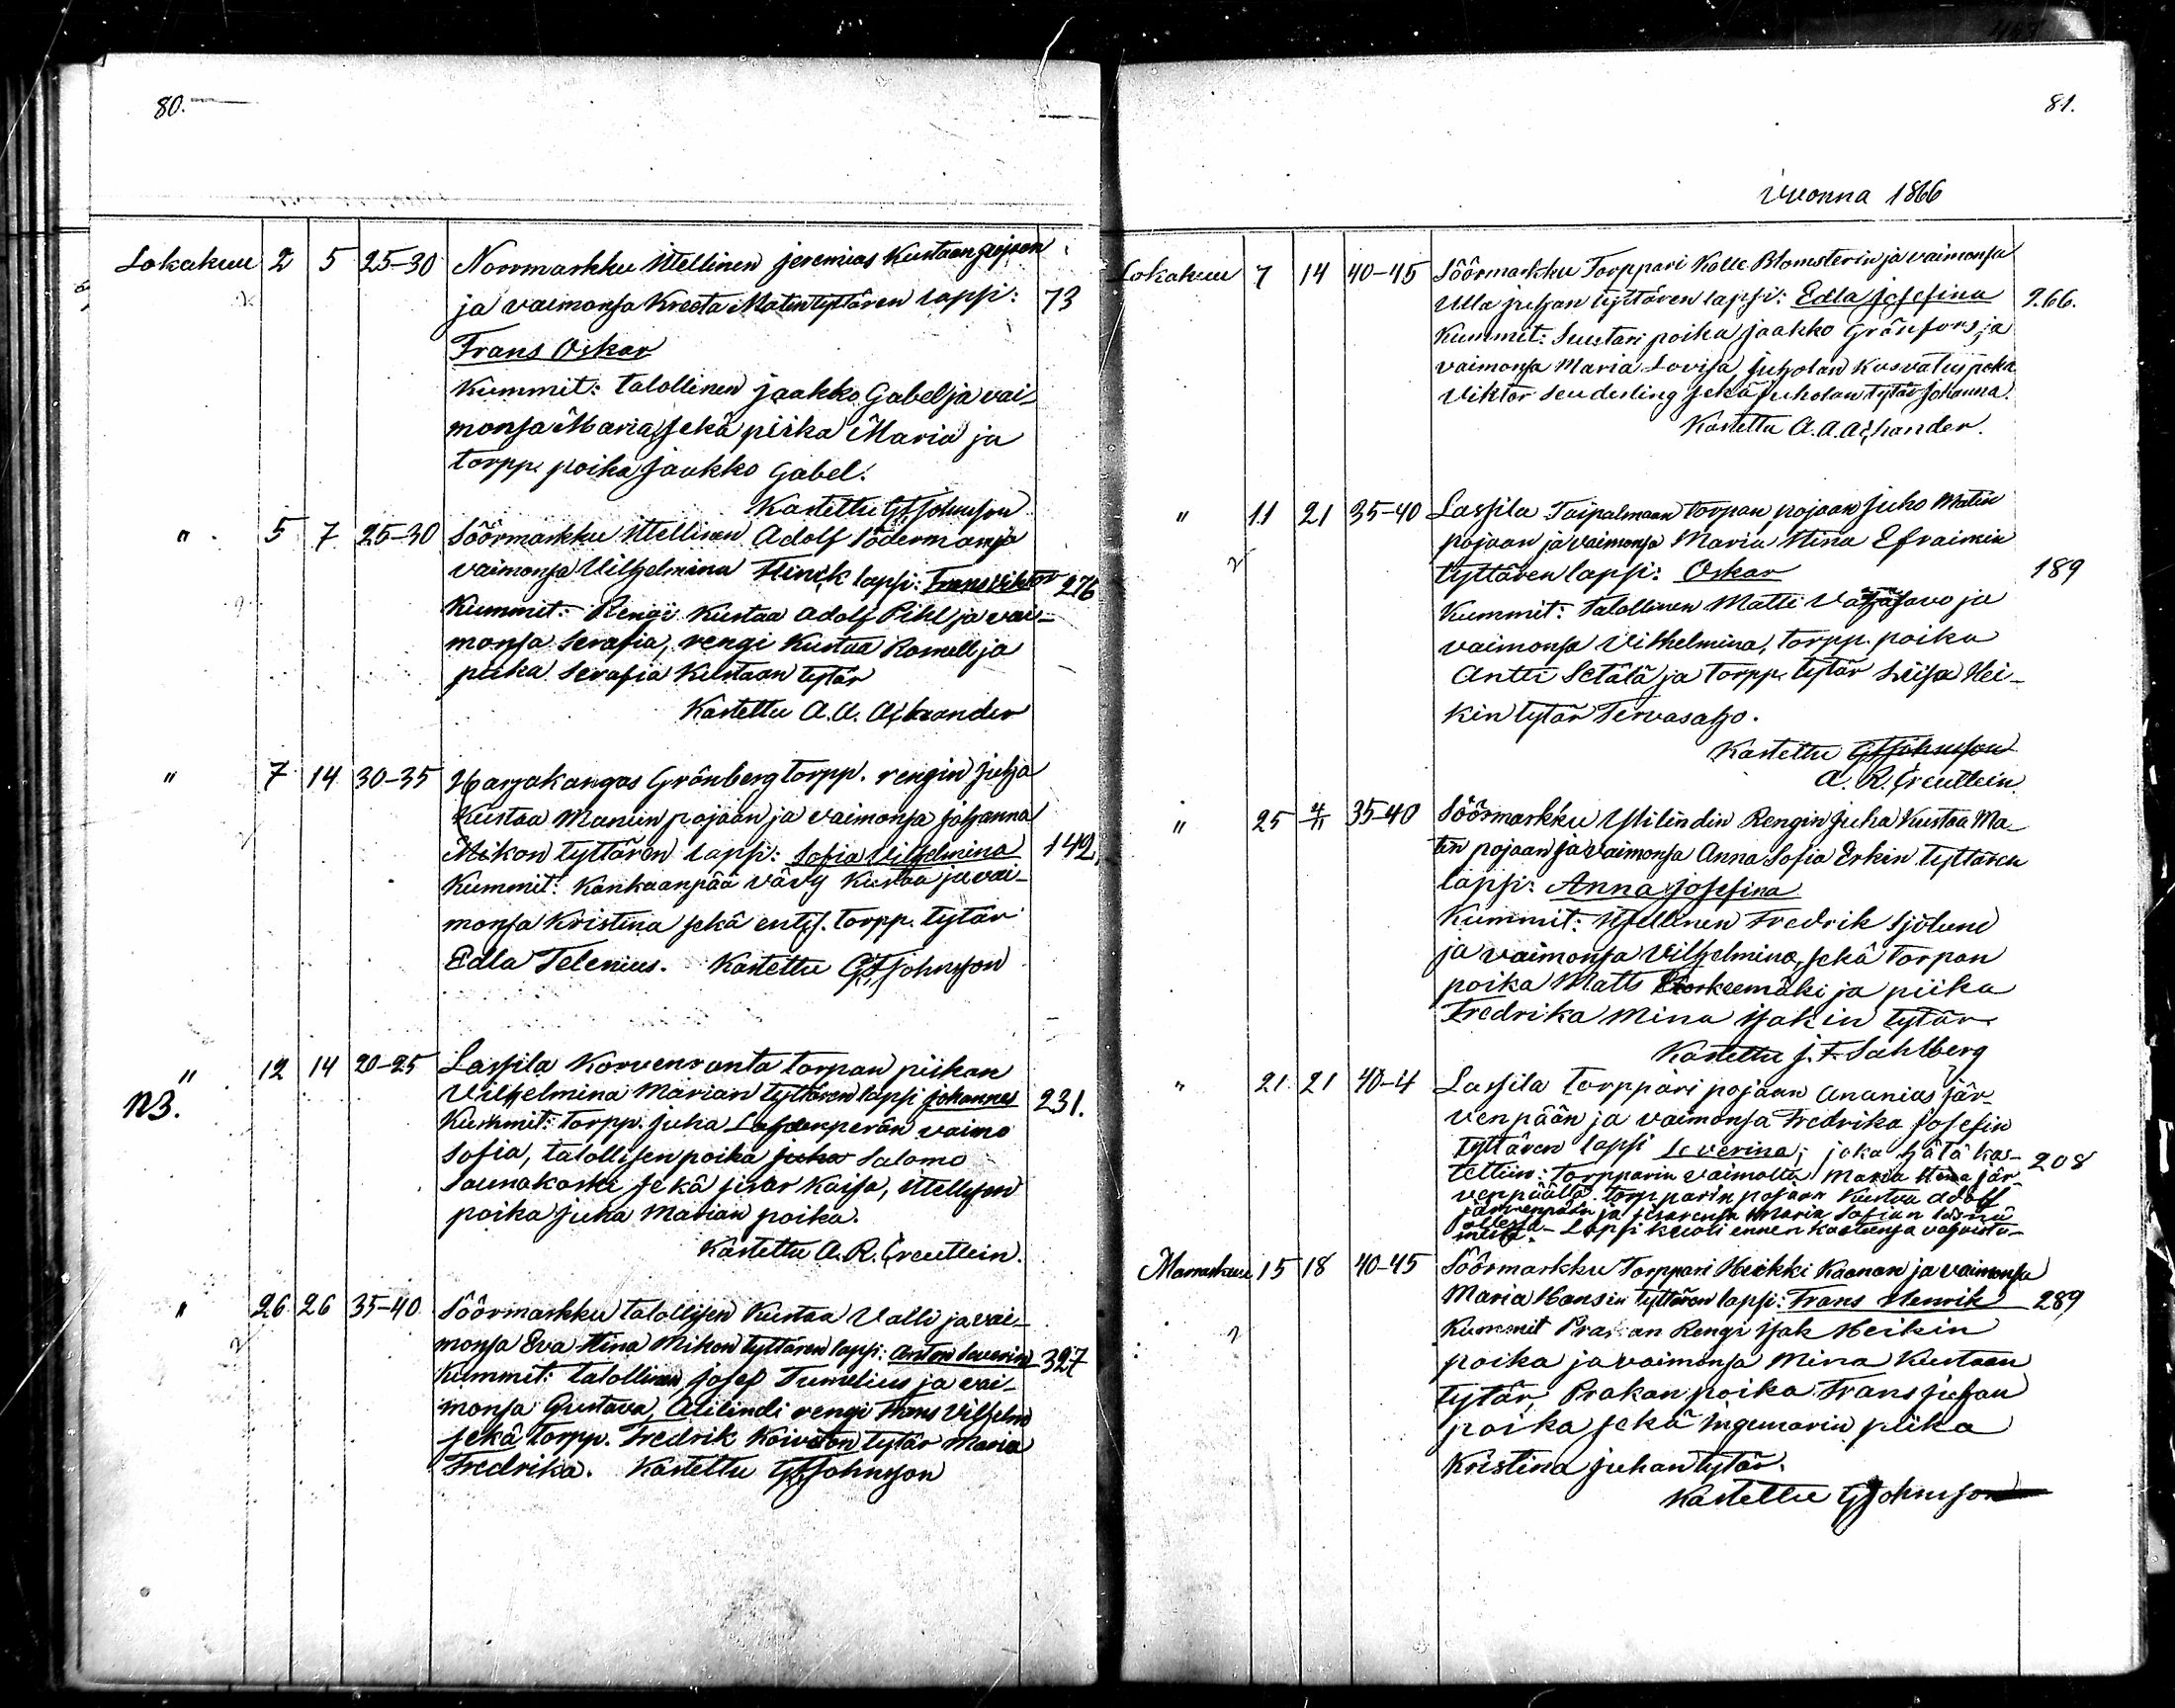 80.
Lokakuu 2 5 25-30 Norrmarkku Itellinen jeremias Kustaan pojan
ja vaimonsa Kreeta Matin tyttären lapsi: 73
Frans Oskar
Kummit: talollinen jaakko Gabel ja vai-
monsa Maria sekä piika Maria ja
torpp. poika jaakko Gabel.
Kastettu G F johnsson
" 5 7 25-30 Söörmarkku Itellinen Adolf Söderman ja
vaimonsa Vilhelmina Flinck lapsi: Frans Viktor 276
Kummit: Rengi Kustaa Adolf Pihl ja vai-
monsa Serafia, rengi Kustaa Rosnell ja
piika Serafia Kustaan tytär
Kastettu A. A.
" 7 14 30-35 Harjakangas Grönberg torpp. rengin Juha
Kustaa Manun pojaan ja vaimonsa johanna
Mikon tyttären lapsi: Sofia Vilhelmina 142
Kummit: Kankaanpää vävy Kustaa ja vai-
monsa Kristina sekä entis. torpp. tytär
Edla Telenius. Kastettu G F johnsson
" 12 14 20-25 Lassila Korvenranta torpan piikan
N3. Vilhelmina Marian tyttären lapsi johannes 231.
Kummit: torpp. juha vaimo
Sofia, talollisen poika juha Salomo
Saunakoski sekä sisar Kaisa, ittellisen
poika juha Marian poika.
Kastettu A. R. Creutlein.
" 26 26 35-40 Söörmarkku talollisen Kustaa Valli ja vai-
monsa Eva Stina Mikon tyttären lapsi: Anton Severin 327
Kummit: talollinen josef Tumelius ja vai-
monsa Gustava, rengi Frans Vilhelm
sekä torpp. Fredrik Koiviston tytär Maria
Fredrika. Kastettu G F johnsson
81.
Vuonna 1866
Lokakuu 7 14 40-45 Söörmarkku Torppari Kalle Blomsterin ja vaimonsa
Ulla juhan tyttären lapsi: Edla josefina 266.
Kummit: Suutari poika jaakko Gränfors ja
vaimonsa Maria Lovisa, juholan Kasvatus poika
Viktor sekä juholan tytär johanna.
Kastettu A. A.
" 11 21 35-40 Lassila Taipalmaan torpan pojaan juho Matin
pojaan ja vaimonsa Maria Stina Efraimin
tyttären lapsi: Oskar 189
Kummit: talollinen Matti ja
vaimonsa Vilhelmina, torpp. poika
Antti Setälä ja torpp. tytär Leisa Hei-
kin tytär Tervasalho.
Kastettu G F johnsson
A. R. Creutlein
" 25 4/11 35-40 Söörmarkku Rengin juha Kustaa Ma-
tin pojaan ja vaimonsa Anna Sofia Erkin tyttären
lapsi: Anna josefina
Kummit: Itsellinen Fredrik Sjölund
ja vaimonsa Vilhelmina, sekä torpan
poika Matts ja piika
Fredrika Mina isakin tytär.
Kastettu j. F. Sahlberg
" 21 21 40-4 Lassila torppari pojaan Ananias jär-
venpään ja vaimonsa Fredrika josefin
tyttären lapsi Severina; joka hätä kas-
tettiin: torpparin vaimolta Maria Stina jär- 208
venpäältä torpparin pojaan Kustaa Adolf
järvenpään ja sisarensa Maria Sofian läsnä
ollessa - Lapsi kuoli ennen kasteensa vahvista-
mista.
Marraskuu 15 18 40-45 Söörmarkku Torppari Heikki Kaanan ja vaimonsa
Maria Hansin tyttären lapsi: Frans Henrik 289
Kummit Prakan Rengi isak Heikin
poika ja vaimonsa Mina Kustaan
tytär, Prakan poika Frans juhan
poika sekä ingemarin piika
Kristina juhan tytär.
Kastettu G F johnsson